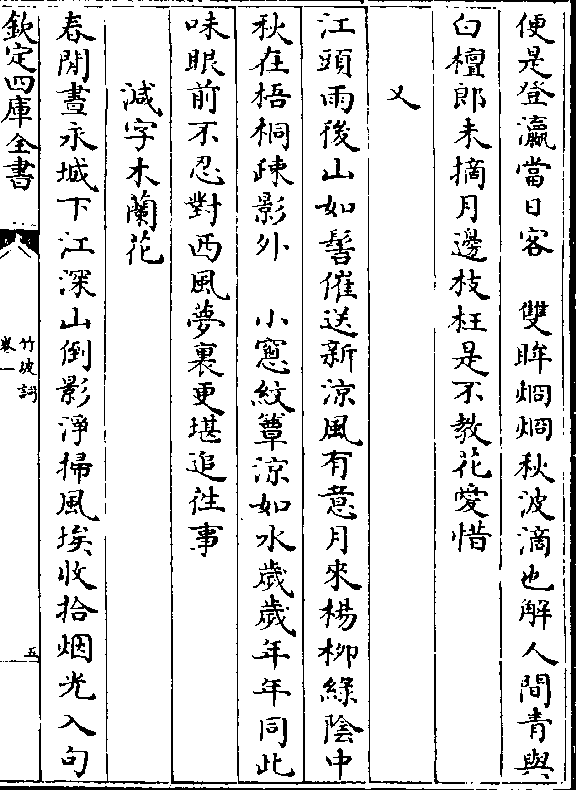 便是登瀛當日客　雙眸烱烱秋波滴也解人間青與
白檀郎未摘月邊枝枉是不教花愛惜
又
江頭雨後山如髻催送新涼風有意月來楊柳綠陰中
秋在梧桐疎影外　小窻紋簟涼如水歲歲年年同此
味眼前不忍對西風夢裏更堪追徃事
減字木蘭花
春閒晝永城下江深山倒影淨掃風埃收拾烟光入句
欽定四庫全書
竹坡詞
卷一
五